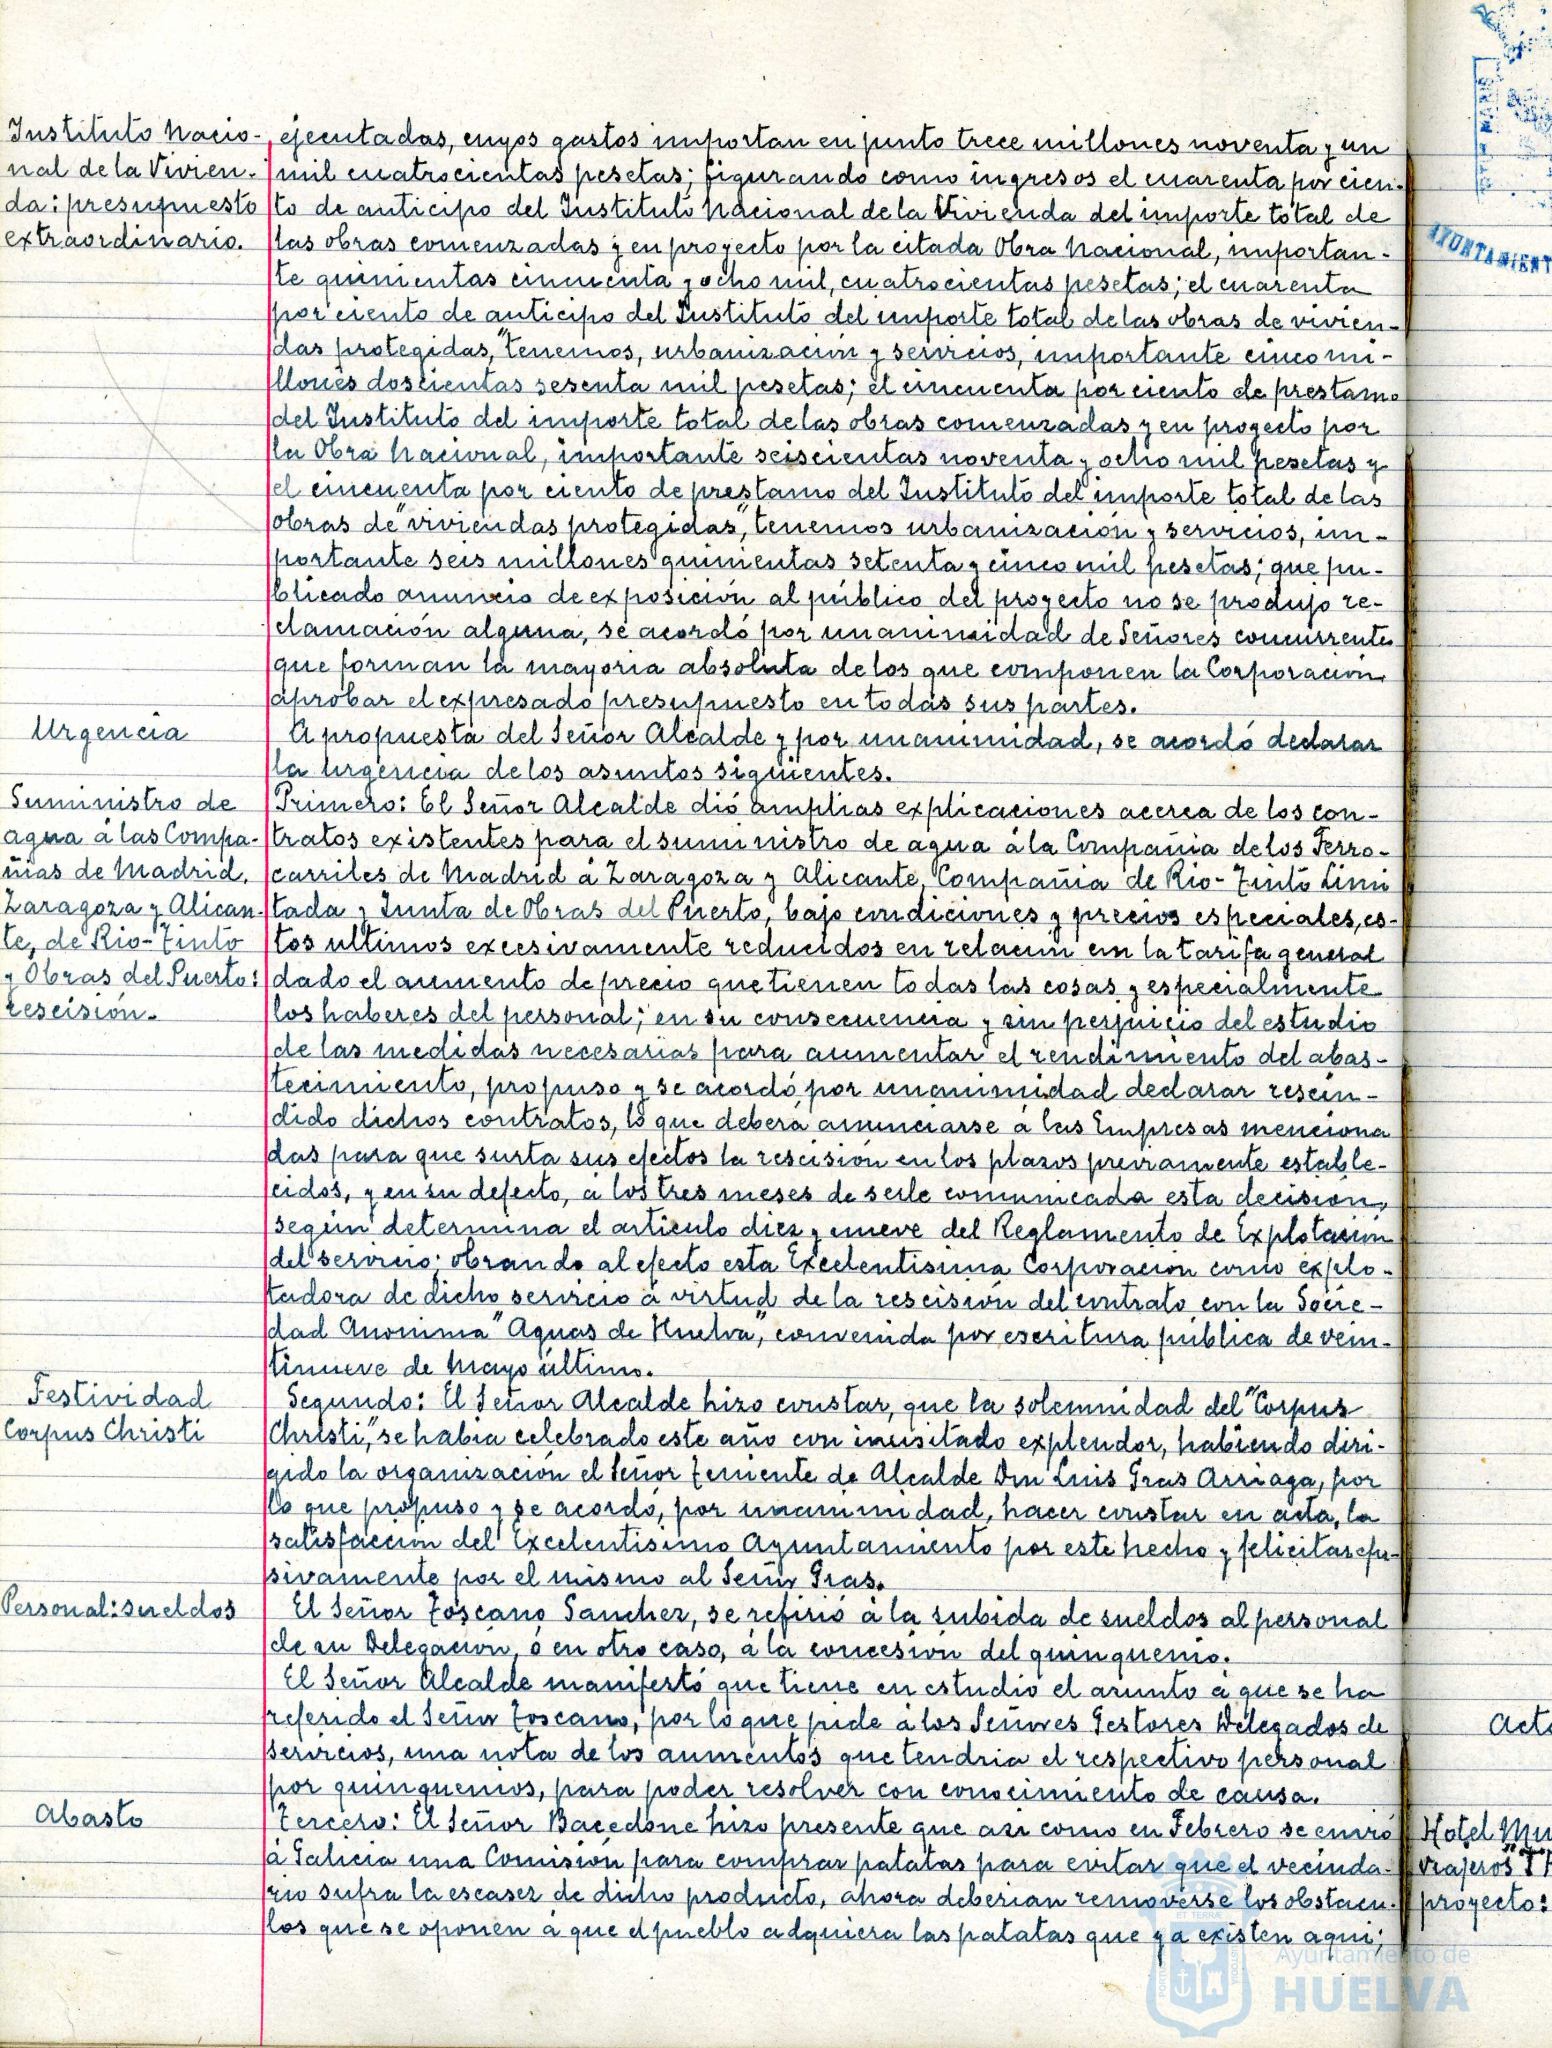 Instituto Nacio-
nal de la Vivien-
da: presupuesto
extraordinario.
ejecutadas, cuyos gastos importan en junto trece millones noventa y un
mil cuatrocientas pesetas; figurando como ingresos el cuarenta por cien-
to de anticipo del Instituto Nacional de la Vivienda del importe total de
las obras comenzadas y en proyecto por la citada Obra Nacional, importan-
te quinientas cincuenta y ocho mil, cuatrocientas pesetas; el cuarenta
por ciento de anticipo del Instituto del importe total de las obras de vivien-
das protegidas," tenemos, urbanización y servicios, importante cinco mi-
llones doscientas sesenta mil pesetas; el cincuenta por ciento de prestamo
del Instituto del importe total de las obras comenzadas y en proyecto por
la Obra Nacional, importante seiscientas noventa y ocho mil pesetas y
el cincuenta por ciento de prestamo del Instituto del importe total de las
obras de "viviendas protegidas", tenemos urbanización y servicios, im-
portante seis millones quinientas setenta y cinco mil pesetas; que pu-
blicado anuncio de exposición al público del proyecto no se produjo re-
clamación alguna, se acordó por unanimidad de Señores concurrentes
que forman la mayoria absoluta de los que componen la Corporación,
aprobar el expresado presupuesto en todas sus partes.
Urgencia
A propuesta del Señor Alcalde y por unanimidad, se acordó declarar
la urgencia de los asuntos siguientes.
Suministro de
agua á las Compa-
ñias de Madrid,
Zaragoza y Alican-
te, de Rio-Tinto
y Obras del Puerto:
rescisión.
Primero: El Señor Alcalde dió amplias explicaciones acerca de los con-
tratos existentes para el suministro de agua á la Compañia de los Ferro-
carriles de Madrid á Zaragoza y Alicante, Compañia de Rio-Tinto Limi
tada y Junta de Obras del Puerto, bajo condiciones y precios especiales, es-
tos ultimos excesivamente reducidos en relación con la tarifa general
dado el aumento de precio que tienen todas las cosas y especialmente
los haberes del personal; en su consecuencia y sin perjuicio del estudio
de las medidas necesarias para aumentar el rendimiento del abas-
tecimiento, propuso y se acordó, por unanimidad declarar rescin-
dido dichos contratos, lo que deberá anunciarse á las Empresas menciona
das para que surta sus efectos la rescisión en los plazos previamente estable-
cidos, y en su defecto, á los tres meses de serle comunicada esta decisión,
según determina el articulo diez y nueve del Reglamento de Explotación
del servicio; obrando al efecto esta Excelentisima Corporación como explo-
tadora de dicho servicio á virtud de la rescisión del contrato con la Socie-
dad Anonima "Aguas de Huelva", convenida por escritura pública de vein-
tinueve de Mayo último.
Festividad
Corpus Christi
Segundo: El Señor Alcalde hizo constar, que la solemnidad del "Corpus
Christi," se habia celebrado este año con inusitado explendor, habiendo diri-
gido la organización el Señor Teniente de Alcalde Don Luis Gras Arriaga, por
lo que propuso y se acordó, por unanimidad, hacer constar en acta, la
satisfacción del Excelentisimo Ayuntamiento por este hecho y felicitar efu-
sivamente por el mismo al Señor Gras.
Personal: sueldos
El Señor Toscano Sanchez, se refirió á la subida de sueldos al personal
de su Delegación, ó en otro caso, á la concesión del quinquenio.
El Señor Alcalde manifestó que tiene en estudio el asunto á que se ha
referido el Señor Toscano, por lo que pide á los Señores Gestores Delegados de
Servicios, una nota de los aumentos que tendria el respectivo personal
por quinquenios, para poder resolver con conocimiento de causa.
Abasto
Tercero: El Señor Bacedone hizo presente que asi como en Febrero se envió
á Galicia una Comisión para comprar patatas para evitar que el vecinda-
rio sufra la escasez de dicho producto, ahora deberian removerse los obstacu-
los que se oponen á que el pueblo adquiera las patatas que ya existen aqui;
AYUNTAMIENT
Acta
Hotel Mu
viajeros
proyecto:
Ayuntamiento de
HUELVA